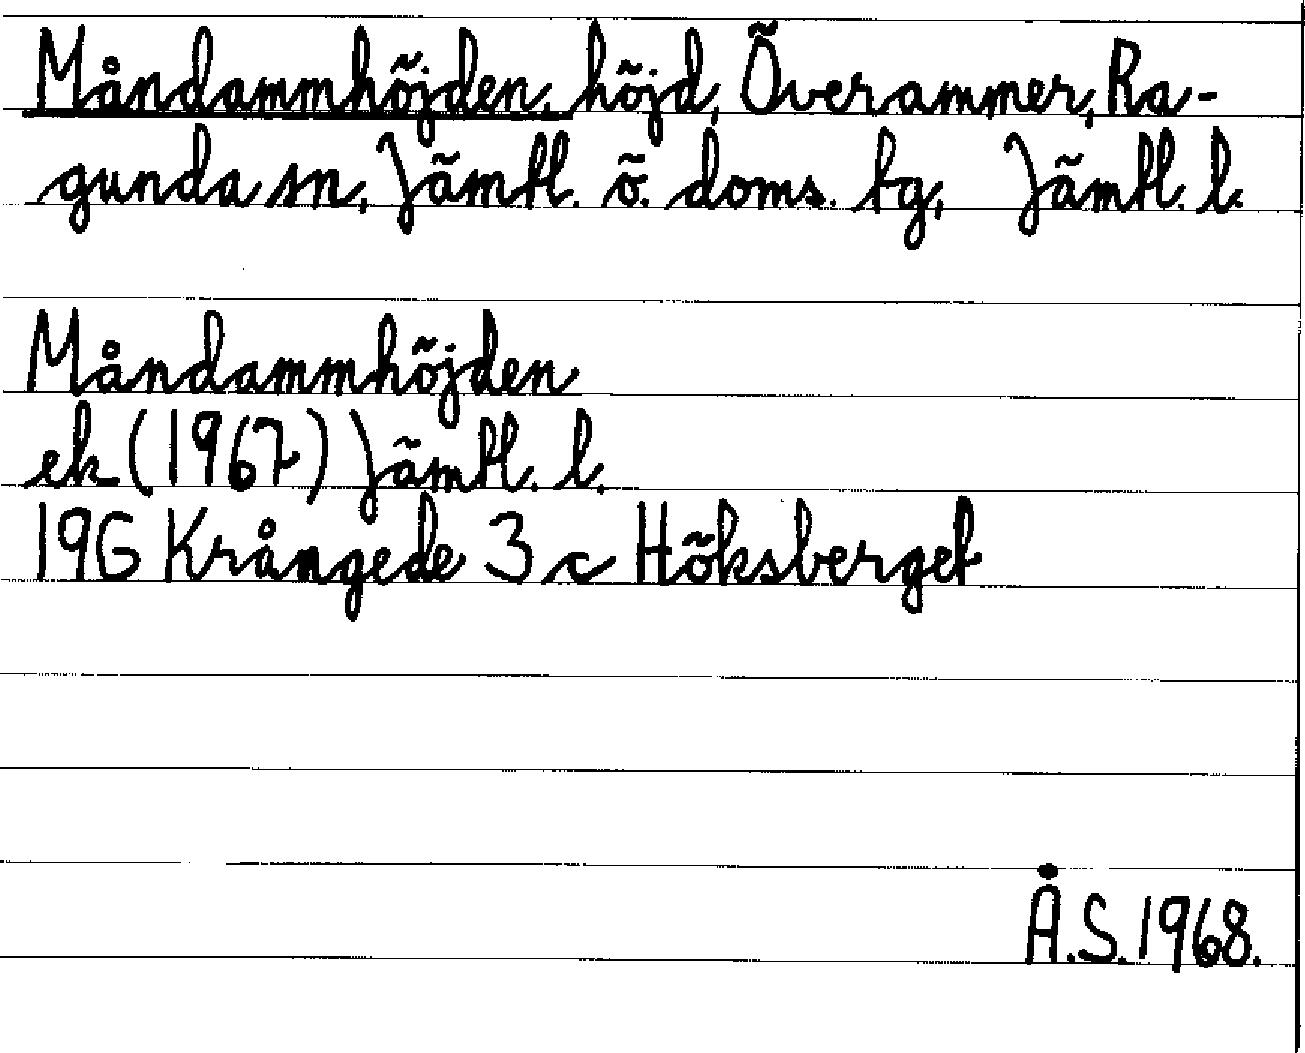 Måndammhöjden, höjd, Överammer, Ra-
gunda sn, Jämtl. ö. doms. tg, Jämtl. l.
Måndammhöjden
ek (1967) Jämtl. l.
19G Krångede 3 c Höksberget
Å.S. 1968.